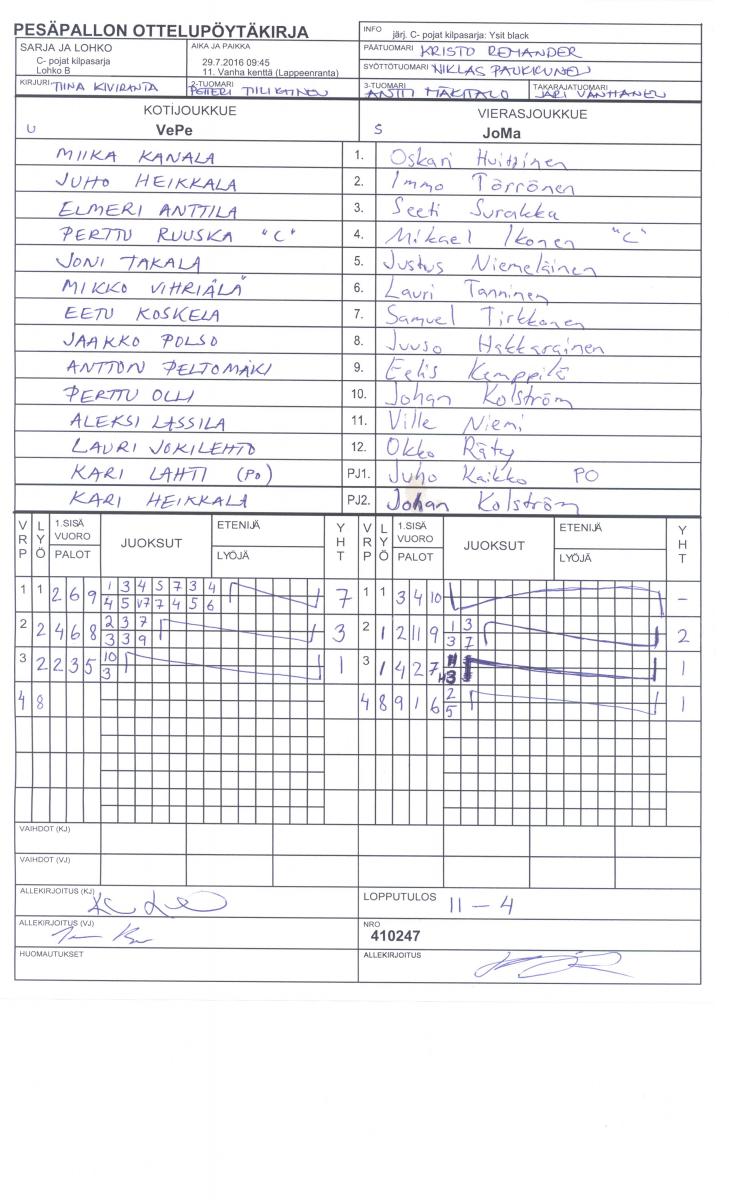 PESÄPALLON OTTELUPÖYTÄKIRJA
INFO järj. C- pojat kilpasarja: Ysit black
SARJA JA LOHKO
C- pojat kilpasarja
Lohko B
AIKA JA PAIKKA
29.7.2016 09:45
11. Vanha kenttä (Lappeenranta)
PÄÄTUOMARI KRISTO REMANDER
SYÖTTÖTUOMARI NIKLAS PAUKKUNEN
KIRJURI: TIINA KIVIRANTA
2-TUOMARI PETTERI TILIKAINEN
3-TUOMARI ANTTI MÄKITALO
TAKARAJATUOMARI JARI VANHANEN
KOTIJOUKKUE
U VePe
VIERASJOUKKUE
S JoMa
MIIKA KANALA 1. Oskari Huittinen
JUHO HEIKKALA 2. Immo Törrönen
ELMERI ANTTILA 3. Seeti Surakka
PERTTU RUUSKA "C" 4. Mikael Ikonen "C"
JONI TAKALA 5. Justus Niemeläinen
MIKKO VIHRIÄLÄ 6. Lauri Tanninen
EETU KOSKELA 7. Samuel Tirkkonen
JAAKKO POLSO 8. Juuso Hakkarainen
ANTTON PELTOMÄKI 9. Eelis Kemppilä
PERTTU OLLI 10. Johan Kolström
ALEKSI LASSILA 11. Ville Niemi
LAURI JOKILEHTO 12. Okko Räty
KARI LAHTI (PO) PJ1. Juho Kaikko PO
KARI HEIKKALA PJ2. Johan Kolström
VRP LYÖ 1.SISÄ VUORO PALOT JUOKSUT ETENIJÄ LYÖJÄ YHT VRP LYÖ 1.SISÄ VUORO PALOT JUOKSUT ETENIJÄ LYÖJÄ YHT
1 1 2 6 9 1 3 4 5 7 3 4 7 1 1 3 4 10 –
4 5 V7 7 4 5 6
2 2 4 6 8 2 3 7 3 2 1 2 11 9 1 3 2
3 3 9 3 7
3 2 2 3 5 10 1 3 1 4 2 7 1
3
4 8 4 8 9 1 6 2 1
5
VAIHDOT (KJ)
VAIHDOT (VJ)
ALLEKIRJOITUS (KJ)
LOPPUTULOS 11 – 4
ALLEKIRJOITUS (VJ)
NRO
410247
HUOMAUTUKSET
ALLEKIRJOITUS